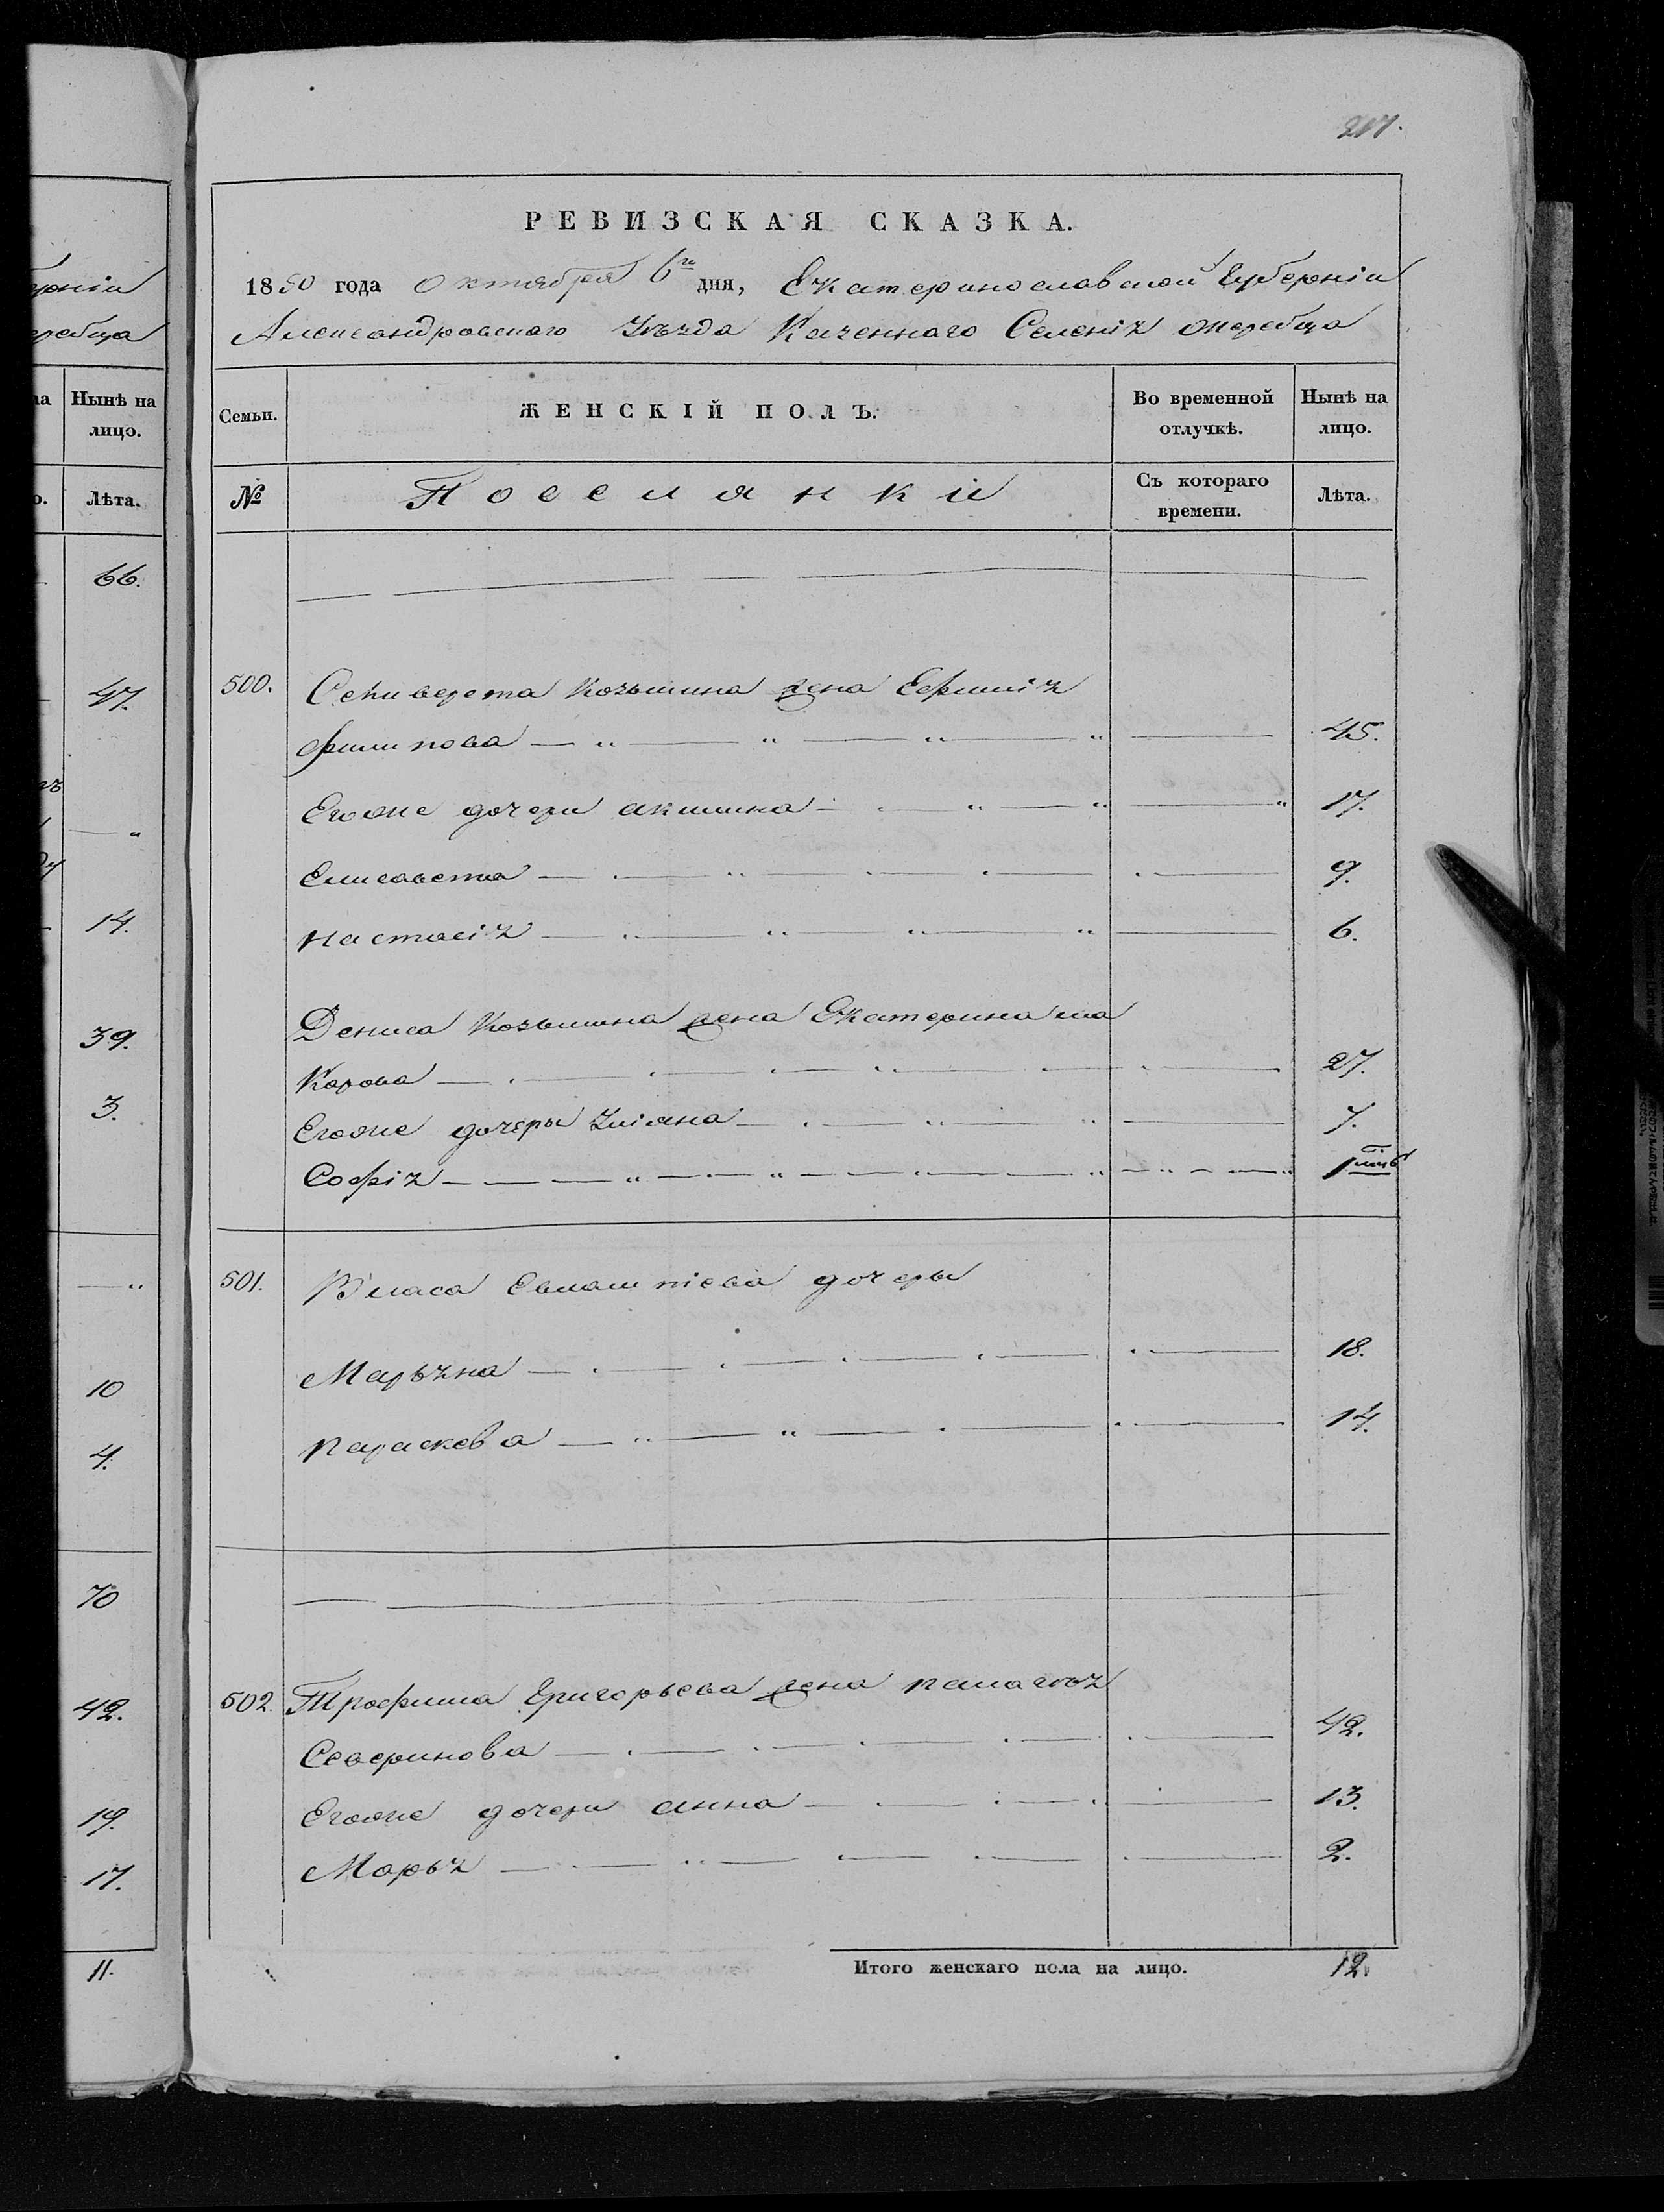 ерніи
еребца
Нынѣ на
лицо.
Лѣта.
66.
47.
14.
39.
3.
10
4.
70
42.
19.
17.
11.
217.
РЕВИЗСКАЯ СКАЗКА.
1850 года Октября 6го дня, Екатеринославской Губерніи
Александровскаго Уѣзда Казеннаго Селенія Жеребца
Семьи.
ЖЕНСКІЙ ПОЛЪ.
Во временной
отлучкѣ.
Нынѣ на
лицо.
№
Поселянки
Съ котораго
времени.
Лѣта.
500. Селиверста Козьмина жена Ефимія
Филипова 45.
Егоже дочери акилина 17.
Елисавета 9.
настасія 6.
Дениса Козьмина жена Екатерина ма
Карова 27.
Егоже дочеры Уліяна 7.
Софія 1
501. Власа Евлампіева дочеры
Марьяна 18.
параскева 14.
502. Трофима Григорьева жена палагѣя
Северинова 42.
Егоже дочери анна 13.
Марья 2.
Итого женскаго пола на лицо. 12.